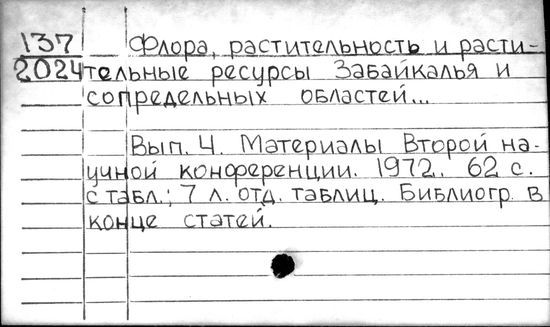 137 Флора, растительность и расти-
2024 тельные ресурсы Забайкалья и
сопредельных областей...
Вып. 4. Материалы Второй на-
учной конференции. 1972. 62 с.
с табл.; 7 л. отд. таблиц. Библиогр. в
конце статей.